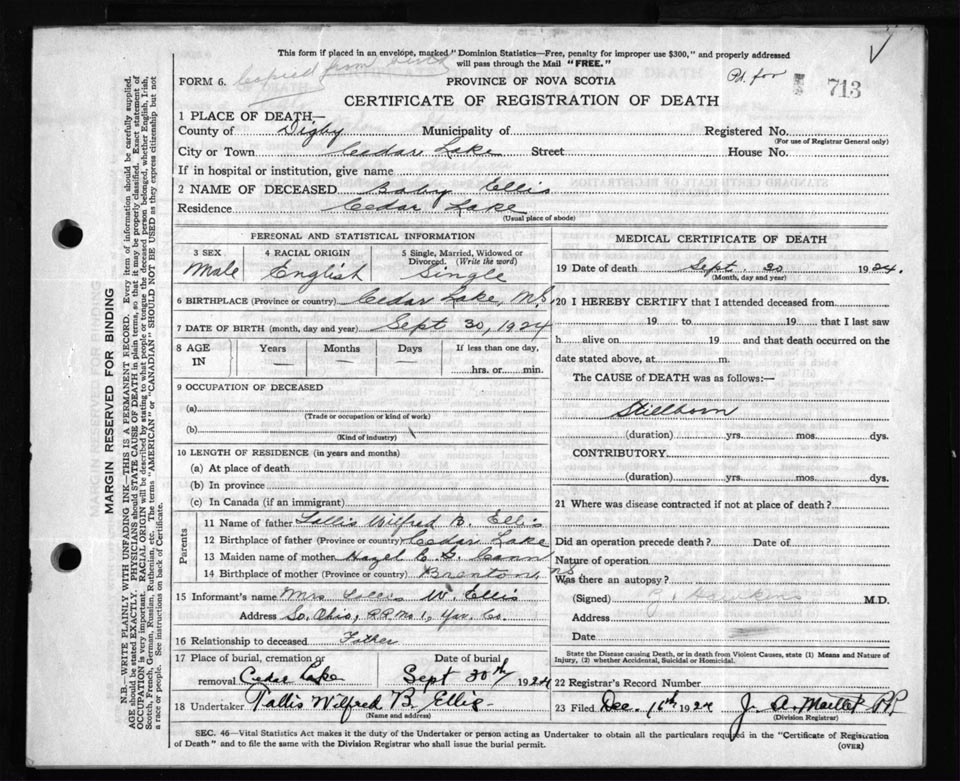 This form if placed in an envelope, marked "Dominion Statistics—Free, penalty for improper use $300," and properly addressed
will pass through the Mail "FREE."
FORM 6. Copied from birth
PROVINCE OF NOVA SCOTIA
Pd. for 713
CERTIFICATE OF REGISTRATION OF DEATH
1 PLACE OF DEATH—
County of Digby Municipality of Registered No.
(For use of Registrar General only)
City or Town Cedar Lake Street House No.
If in hospital or institution, give name
2 NAME OF DECEASED Baby Ellis
Residence Cedar Lake
(Usual place of abode)
PERSONAL AND STATISTICAL INFORMATION
3 SEX 4 RACIAL ORIGIN 5 Single, Married, Widowed or Divorced. (Write the word)
Male English Single
6 BIRTHPLACE (Province or country) Cedar Lake, N.S.
7 DATE OF BIRTH (month, day and year) Sept 30, 1924
8 AGE IN Years Months Days If less than one day,
— — — hrs. or min.
9 OCCUPATION OF DECEASED
(a)
(Trade or occupation or kind of work)
(b)
(Kind of industry)
10 LENGTH OF RESIDENCE (in years and months)
(a) At place of death
(b) In province
(c) In Canada (if an immigrant)
Parents
11 Name of father Tallis Wilfred B. Ellis
12 Birthplace of father (Province or country) Cedar Lake
13 Maiden name of mother Hazel E. G. Cann
14 Birthplace of mother (Province or country) Brenton, NS
15 Informant's name Mrs Tallis W. Ellis
Address So. Ohio, R.R. No 1, Yar. Co.
16 Relationship to deceased Father
17 Place of burial, cremation or Date of burial
removal Cedar Lake Sept 30th 1924
18 Undertaker Tallis Wilfred B. Ellis
(Name and address)
MEDICAL CERTIFICATE OF DEATH
19 Date of death Sept. 30 1924.
(Month, day and year)
20 I HEREBY CERTIFY that I attended deceased from
19 to 19 that I last saw
h alive on 19 and that death occurred on the
date stated above, at m.
The CAUSE of DEATH was as follows:—
Stillborn
(duration) yrs. mos. dys.
CONTRIBUTORY
(duration) yrs. mos. dys.
21 Where was disease contracted if not at place of death?
Did an operation precede death? Date of
Nature of operation
Was there an autopsy?
(Signed) M.D.
Address
Date
State the Disease causing Death, or in death from Violent Causes, state (1) Means and Nature of
Injury, (2) whether Accidental, Suicidal or Homicidal.
22 Registrar's Record Number
23 Filed Dec. 16th 1924 J. A.
(Division Registrar)
SEC. 46—Vital Statistics Act makes it the duty of the Undertaker or person acting as Undertaker to obtain all the particulars required in the "Certificate of Registration
of Death" and to file the same with the Division Registrar who shall issue the burial permit.
(OVER)
MARGIN RESERVED FOR BINDING
N.B.—WRITE PLAINLY WITH UNFADING INK—THIS IS A PERMANENT RECORD. Every item of information should be carefully supplied.
AGE should be stated EXACTLY. PHYSICIANS should STATE CAUSE OF DEATH in plain terms, so that it may be properly classified. Exact statement of
OCCUPATION is very important. RACIAL ORIGIN will be described by stating to what people or tongue the deceased person belonged, whether English, Irish,
Scotch, French, German, Russian, Ruthenian, etc. The terms "AMERICAN" or "CANADIAN" SHOULD NOT BE USED as they express citizenship but not
a race or people. See instructions on back of Certificate.